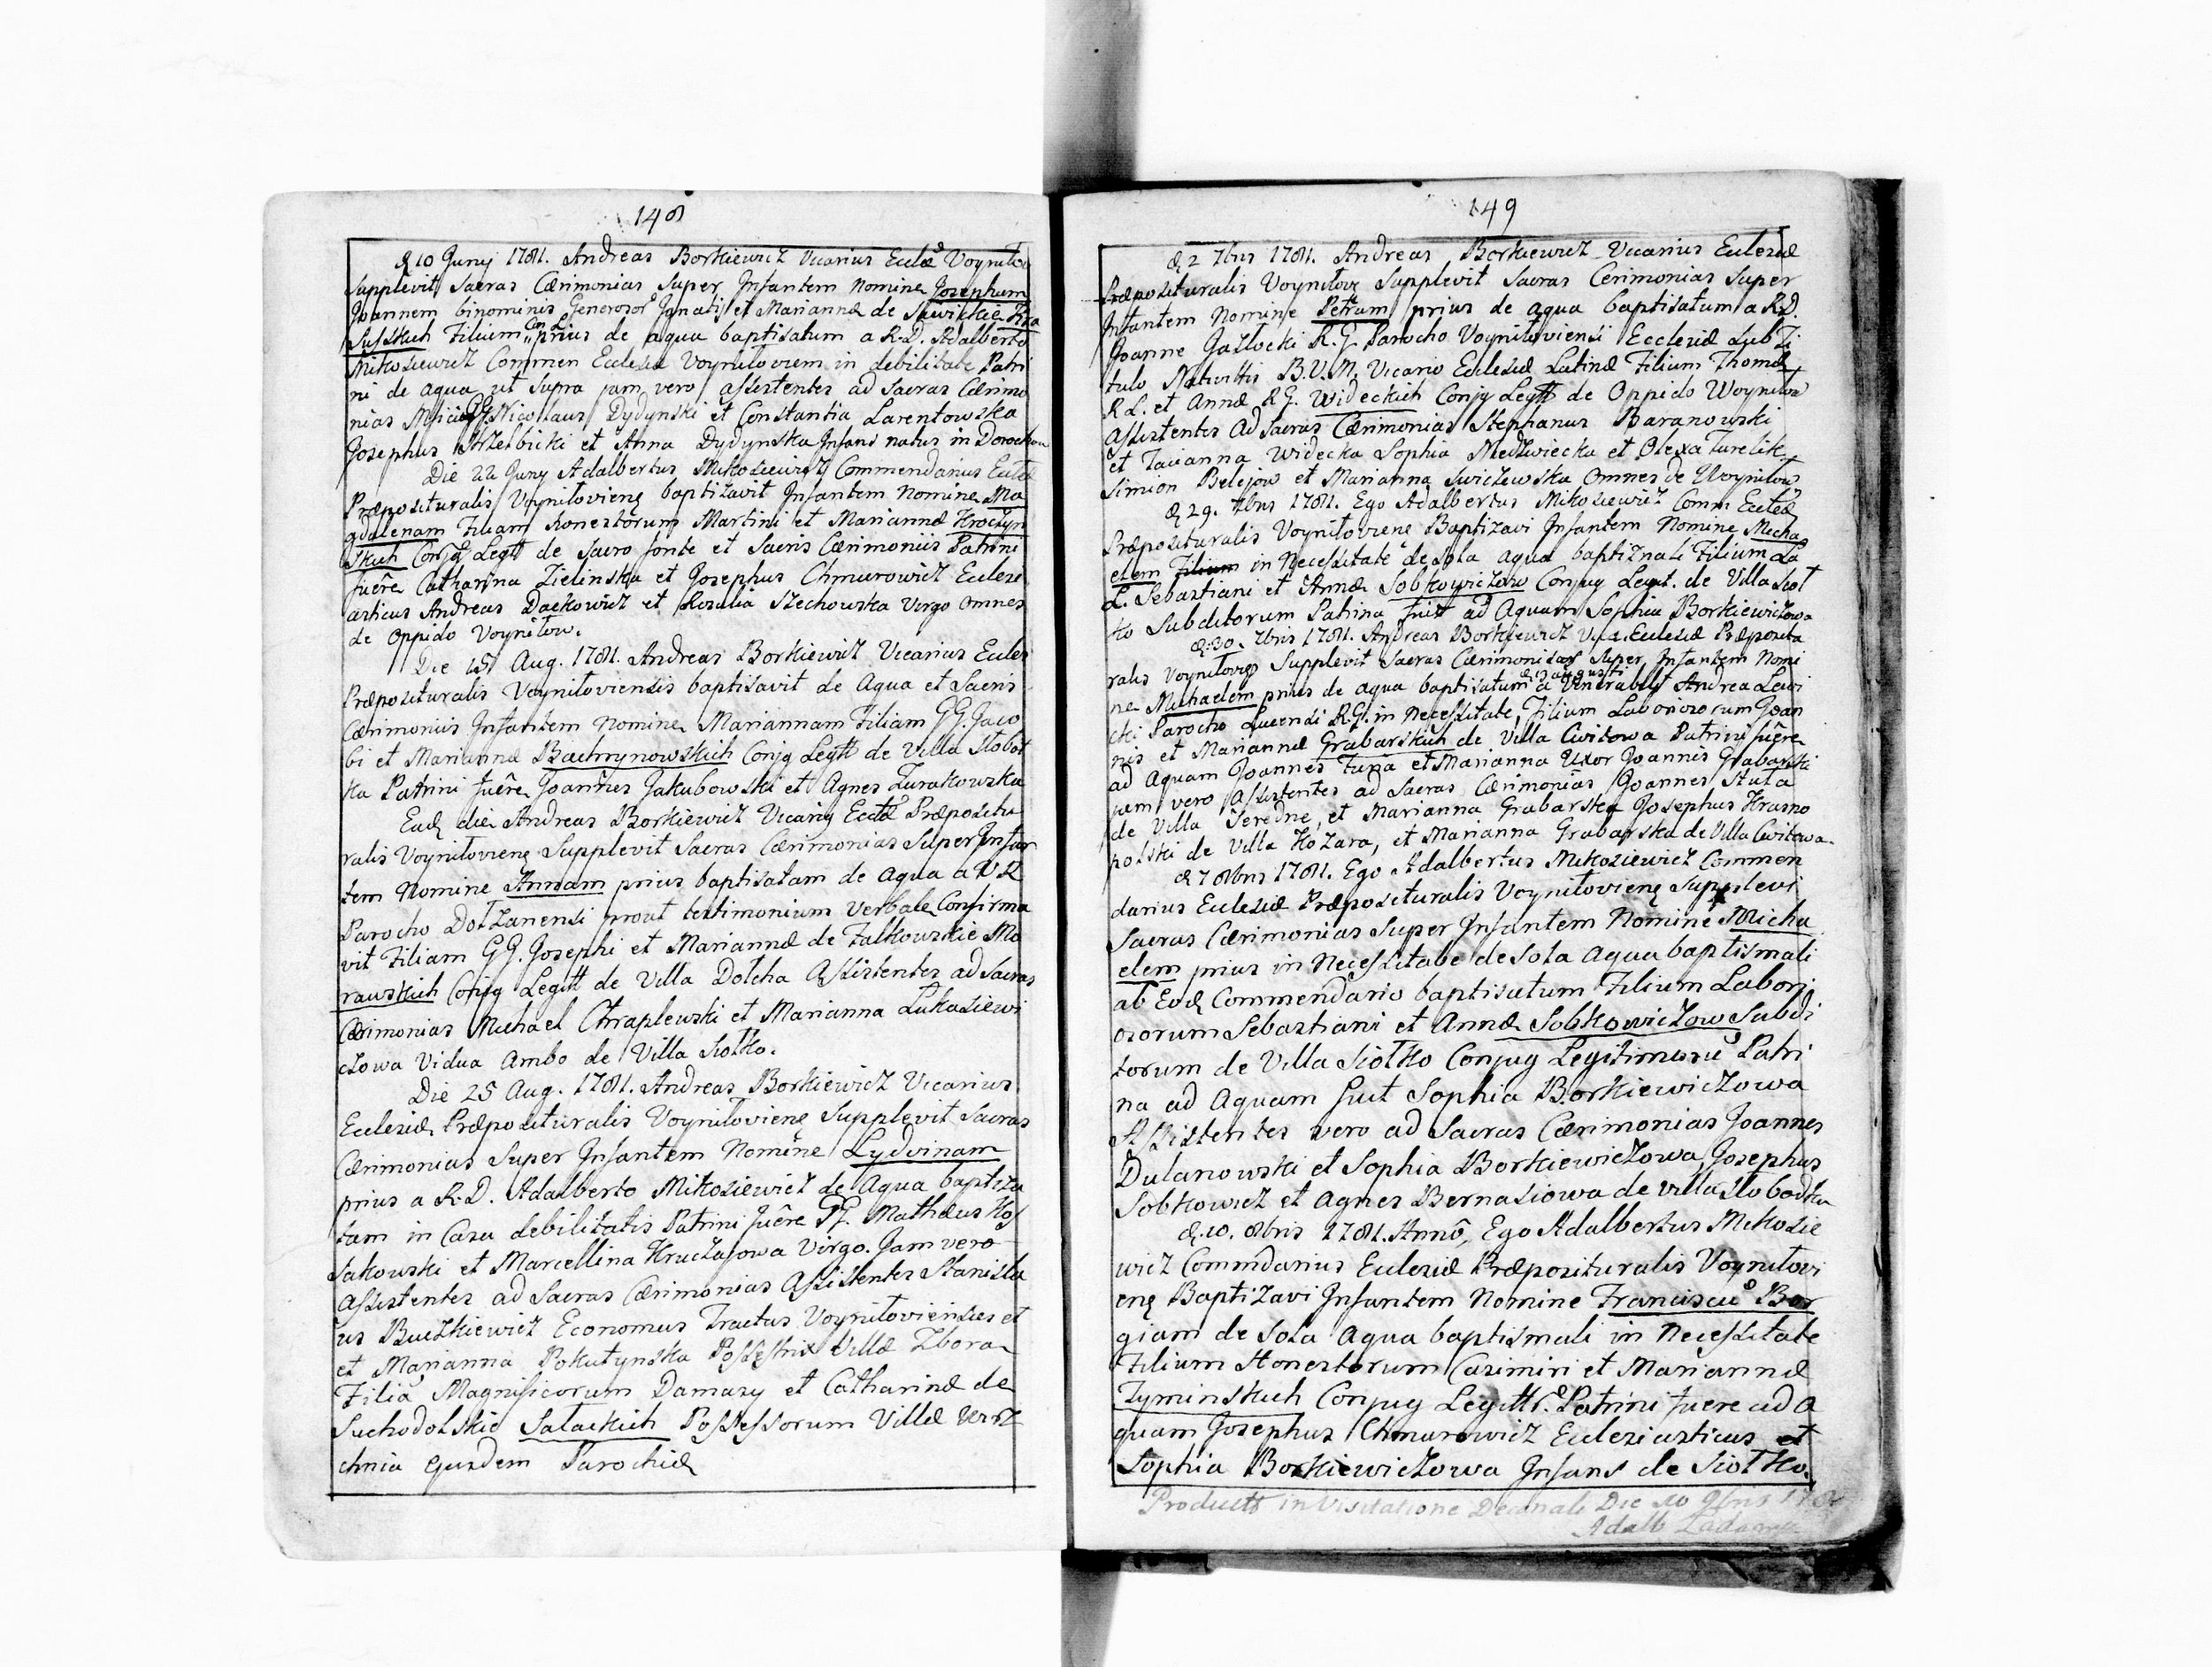 148
D 10 Junij 1781. Andreas Borkiewicz Vicarius Eccl̃æ Voynilov
Supplevit Sacras Cærimonias Super Infantem Nomine Josephum
Joannem binominis Generosor̃ Ignatij et Mariannæ de Sawickie
Filium prius de aqua baptisatum a R.D. Adalberto
Mikosiewicz Commen Ecclesiæ Voyniloviem in debilitate Patri
ni de aqua ut Supra jam vero assistentes ad Sacras Cærimo
nias Nicolaus Dydynski et Constantia Larentowska
Josephus Strzelbicki et Anna Dydynska Infans natus in
Die 22 Juny Adalbertus Mikosiewicz Commendarius Eccl̃æ
Præposituralis Voyniloviens baptizavit Infantem Nomine Ma
gdalenam Filiam Honestorum Martini et Mariannæ Kroczyn
skich Conjg Legtt de Sacro fonte et Sacris Cærimoniis Patrini
fuêre Catharina Zielinska et Josephus Chmurowicz Eclesi
asticus Andreas Dackowicz et Rosalia Szechowska Virgo Omnes
de Oppido Voynilow.
Die 15 Aug. 1781. Andreas Borkiewicz Vicarius Eccles
Præposituralis Voyniloviensis baptisavit de Aqua et Sacris
Cærimoniis Infantem Nomine Mariannam Filiam GG. Jaco
bi et Mariannæ Bachmynowskich Conjg Legtt de Villa Slobot
ka Patrini fuêre Joannes Jakubowski et Agnes Zurakowska
Eadem die Andreas Borkiewicz Vicariq Eccl̃æ Præpositu
ralis Voyniloviens Supplevit Sacras Cærimonias Super Infan
tem Nomine Annam prius baptisatam de Aqua a VR
Parocho Dołzanensi prout testimonium Verbale Confirma
vit Filiam GG. Josephi et Mariannæ de Falkowskie Mo
rawskich Conjg Legtt de Villa Dołcha Assistentes ad Sacras
Cærimonias Michael Chraplewski et Marianna Lukasiewi
czowa Vidua Ambo de Villa Siołko.
Die 25 Aug. 1781. Andreas Borkiewicz Vicarius
Ecclesiæ Præposituralis Voyniloviens Supplevit Sacras
Cærimonias Super Infantem Nomine Lydvinam
prius a R.D. Adalberto Mikosiewicz de Aqua baptiza
tam in Casu debilitatis Patrini fuêre GG. Mathæus Ko
sakowski et Marcellina Kruczajowa Virgo. Jam vero
Assistentes ad Sacras Cærimonias Assistentes Stanisla
us Buczkiewicz Economus Tractus Voyniloviensies et
et Marianna Pokutynska Possestrix Villæ Zbora
Filia Magnificorum Damazy et Catharinæ de
Suchodolskie Sałackich Possessorum Villæ Wirz
chnia Ejusdem Parochiæ
149
D 2 7bris 1781. Andreas Borkiewicz Vicarius Eclesiæ
Præposituralis Voynilov Supplevit Sacras Cerimonias Super
Infantem Nomine Petrum prius de aqua baptisatum a R.D.
Joanne Gazłocki R.G. Parocho Voyniloviensi Ecclesiæ Sub Ti
tulo Nativttis B.V.M. Vicario Eclesiæ Latinæ Filium Thomæ
R L. et Annæ R G. Wideckich Conjg Legtt de Oppido Woynilow
Assistentes Ad Sacras Cærimonias Stephanus Baranowski
et Tacianna Widecka Sophia Niedzwiecka et Olexa Turelik
Simion Belejow et Marianna Swiczewska Omnes de Woynilow
D 29. 7bris 1781. Ego Adalbertus Mikosiewicz Comm Eccl̃æ
Præposituralis Voyniloviens Baptizavi Infantem Nomine Micha
elem Filium in Necessitate de Sola Aqua baptiznali Filium La
L. Sebastiani et Annæ Sobkowiczow Conjug Legit. de Villa Sioł
ko Subditorum Patrina fuit ad Aquam Sophia Borkiewiczowa
D: 30. 7bris 1781. Andreas Borkiewicz Vica. Eclesiæ Præposita
ralis Voynilovs Supplevit Sacras Cærimonias Super Infantem Nomi
ne Michaelem prius de aqua baptisatum a Venerabili Andrea Lewi
cki Parocho Lucensi R.G. in Necessitate, Filium Laboriosorum Joan
nis et Mariannæ Grabarskich de Villa Cwitowa Patrini fuêre
ad Aquam Joannes Tuza et Marianna Uxor Joannis Grabarski
jam vero Assistentes ad Sacras Cærimonias Joannes Stula
de Villa Seredne, et Marianna Grabarska Josephus Krasno
polski de Villa Kozara, et Marianna Grabarska de Villa Cwitowa.
D 7 8bris 1781. Ego Adalbertus Mikosiewicz Commen
darius Eclesiæ Præposituralis Voyniloviens Supplevi
Sacras Cærimonias Super Infantem Nomine Micha
elem prius in Necessitate de Sola Aqua baptismali
ab Eod Commendario baptisatum Filium Labori
osorum Sebastiani et Annæ Sobkowiczow Subdi
torum de Villa Siołko Conjug Legitimorũ Patri
na ad Aquam fuit Sophia Borkiewiczowa
Assistentes vero ad Sacras Cærimonias Joannes
Dulanowski et Sophia Borkiewiczowa, Josephus
Sobkowicz et Agnes Bernasiowa de Villa Slobodka
D. 10. 8bris 1781. Annô, Ego Adalbertus Mikosie
wicz Commdarius Eclesiæ Præposituralis Voynilovi
ens Baptizavi Infantem Nomine Franciscũ Bor
giam de Sola Aqua baptismali in Necessitate
Filium Honestorum Casimiri et Mariannæ
Zyminskich Conjug Legitt. Patrini fuere ad A
quam Josephus Chmurowicz Eclesiasticus et
Sophia Borkiewiczowa Infans de Siołko.
Product in Visitatione Decanali Die 10 9bris
Adalb